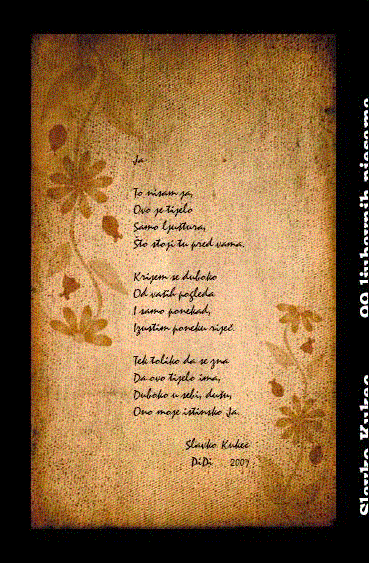 Ja
To nisam ja,
Ovo je tijelo
Samo ljuštura,
Što stoji tu pred vama.
Krijem se duboko
Od vaših pogleda
I samo ponekad,
Izustim poneku riječ.
Tek toliko da se zna
Da ovo tijelo ima,
Duboko u sebi, dušu,
Ono moje istinsko Ja.
Slavko Kukec
DiDi 2009
Slavko Kukec 99 ljubavnih pjesama